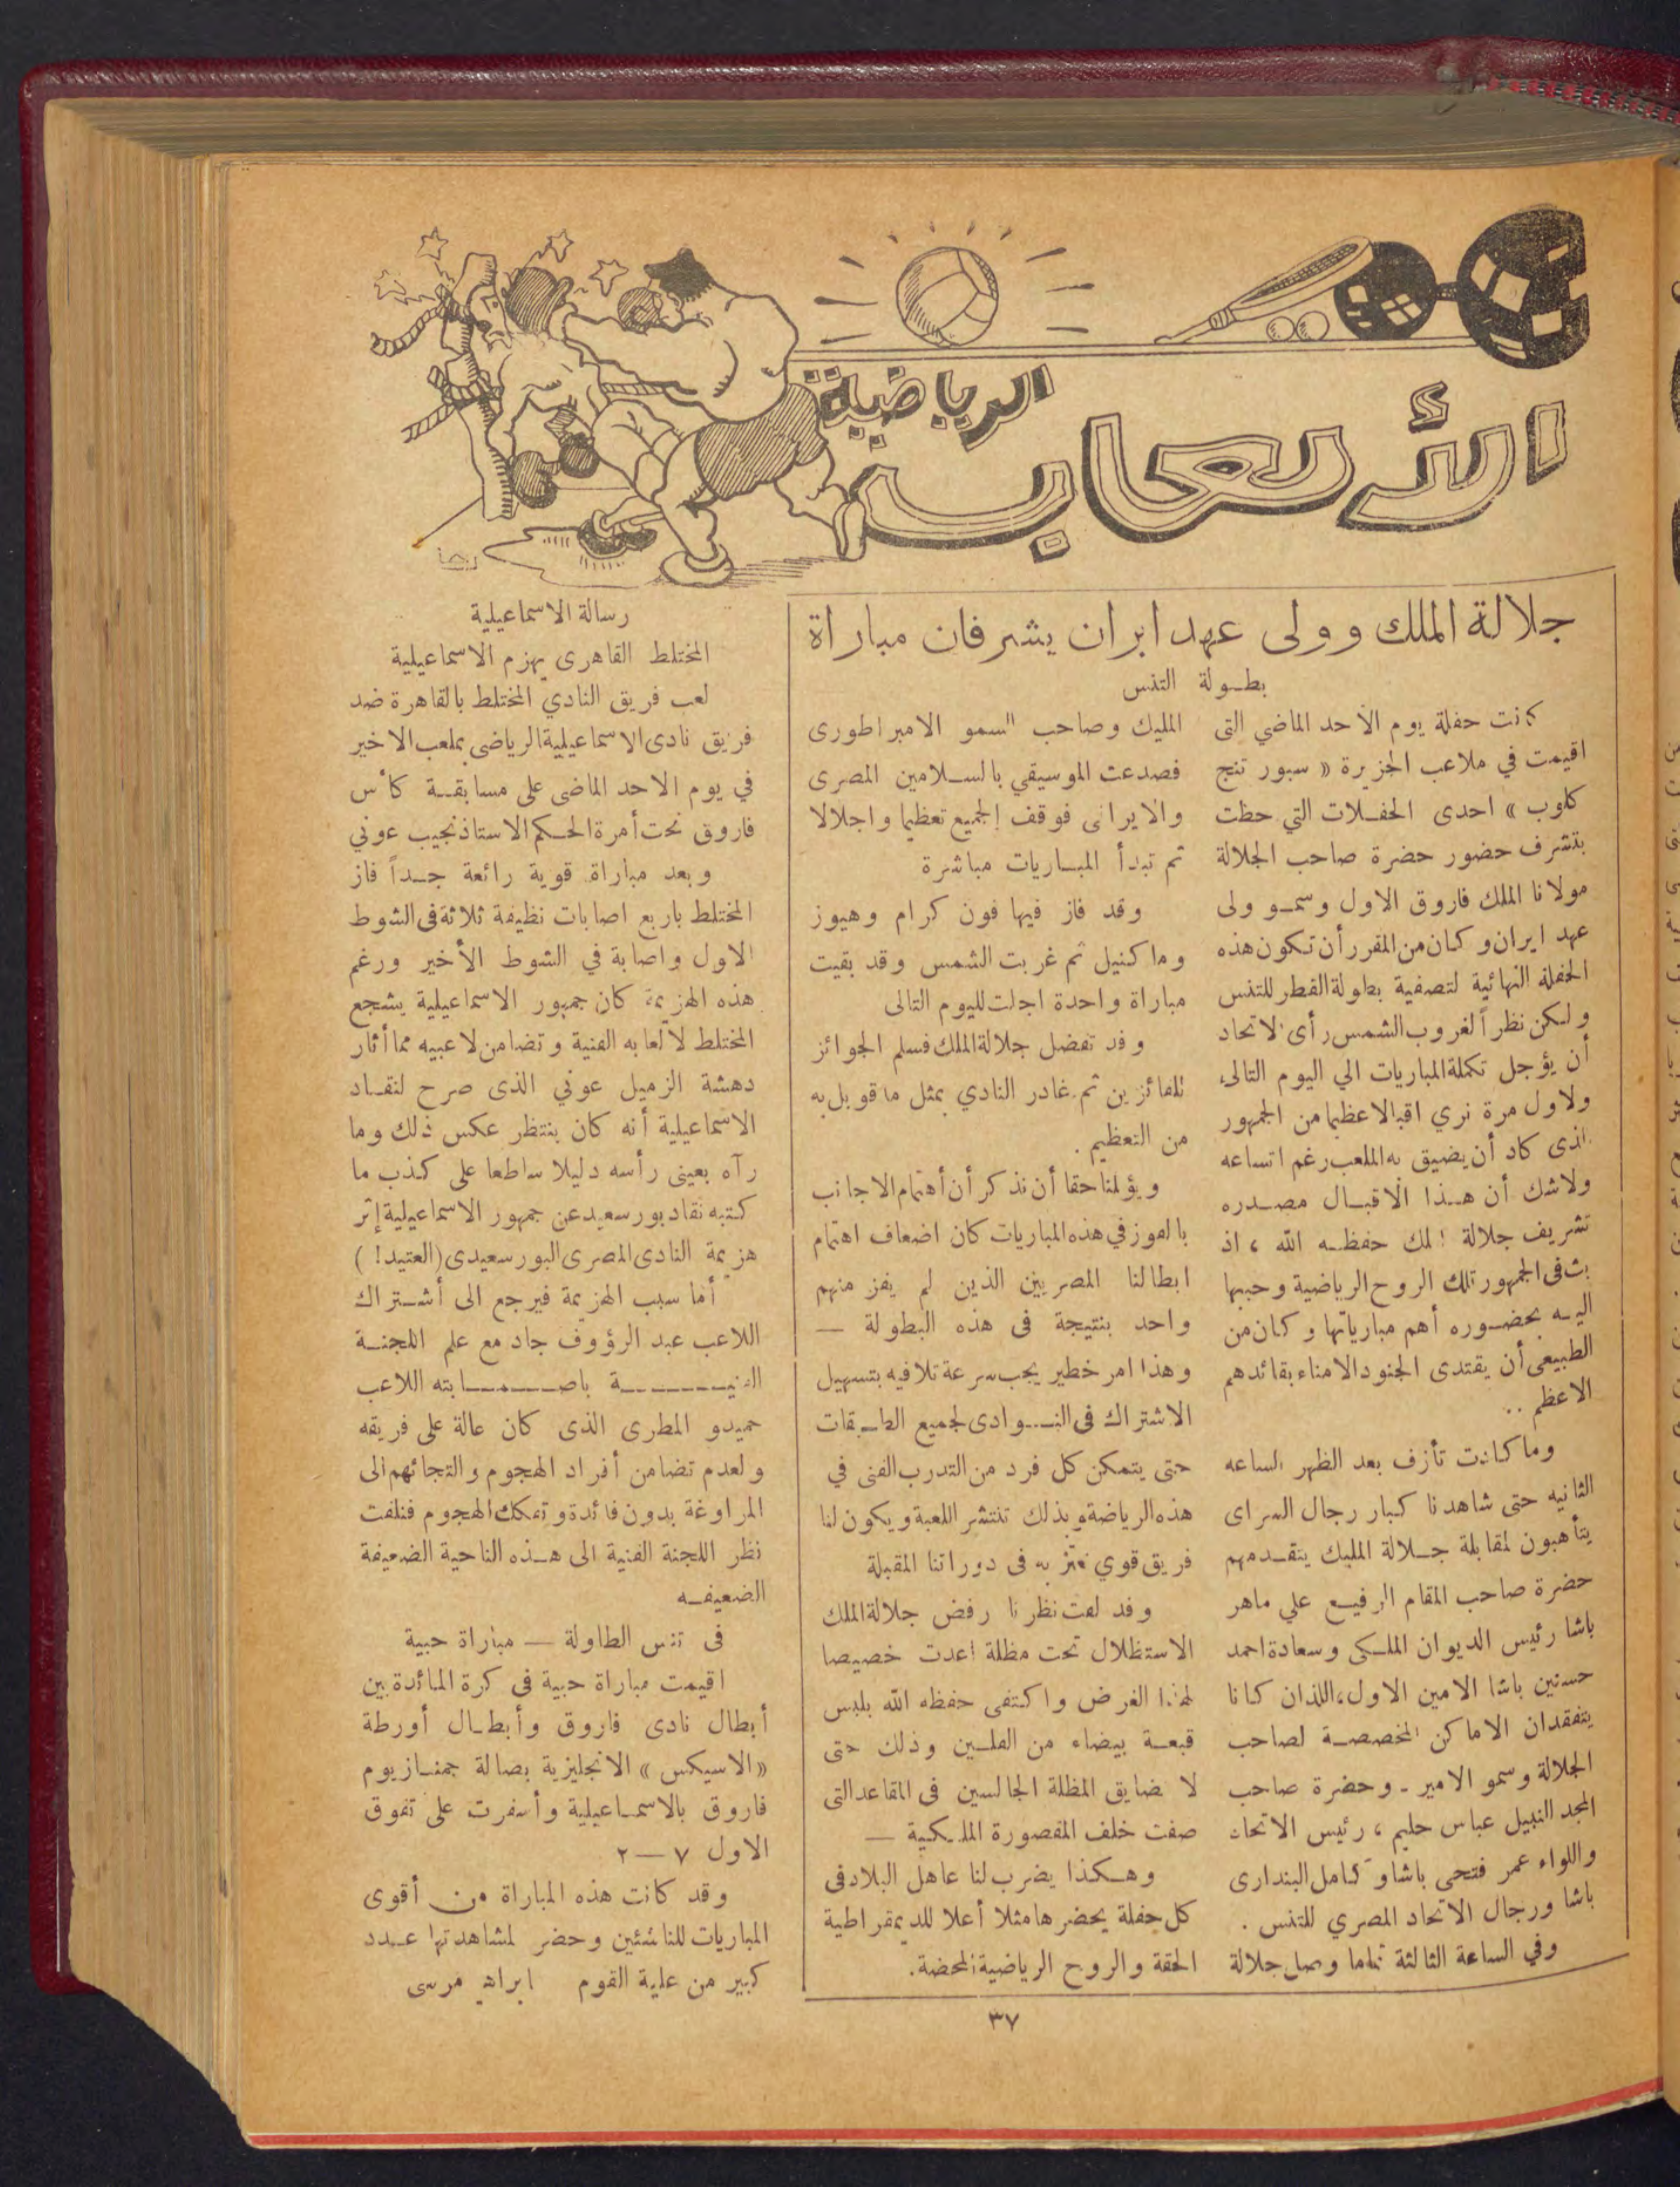 الألعاب
الرياضية
جلالة الملك وولى عهد ايران يشرفان مباراة
بطولة التنس
كانت حفلة يوم الأحد الماضي التى
اقيمت في ملاعب الجزيرة « سبور تنج
كلوب » احدى الحفلات التي حظت
بتشرف حضور حضرة صاحب الجلالة
مولانا الملك فاروق الاول وسمو ولى
عهد ايران وكان من المقرر أن تكون هذه
الحفلة النهائية لتصفية بطولة القطر للتنس
ولكن نظراً لغروب الشمس رأى الاتحاد
أن يؤجل تكملة المباريات الي اليوم التالى،
ولاول مرة نري اقبالا عظيما من الجمهور
الذى كاد أن يضيق به الملعب رغم اتساعه
ولاشك أن هذا الاقبال مصدره
تشريف جلالة الملك حفظه الله ، اذ
بث فى الجمهور تلك الروح الرياضية وحببها
اليه بحضوره أهم مبارياتها وكان من
الطبيعى أن يقتدى الجنود الامناء بقائدهم
الاعظم ..
وما كادت تأزف بعد الظهر الساعه
الثانيه حتى شاهدنا كبار رجال السراى
يتأهبون لمقابلة جلالة المليك يتقدمهم
حضرة صاحب المقام الرفيع علي ماهر
باشا رئيس الديوان الملكى وسعادة احمد
حسنين باشا الامين الاول، اللذان كانا
يتفقدان الاماكن المخصصة لصاحب
الجلالة وسمو الامير - وحضرة صاحب
المجد النبيل عباس حليم ، رئيس الاتحاد
واللواء عمر فتحى باشا وكامل البندارى
باشا ورجال الاتحاد المصري للتنس .
وفي الساعة الثالثة تماما وصل جلالة
المليك وصاحب السمو الامبراطورى
فصدعت الموسيقي بالسلامين المصرى
والايرانى فوقف الجميع تعظيما واجلالا
ثم تبدأ المباريات مباشرة
وقد فاز فيها فون كرام وهيوز
وماكنيل ثم غربت الشمس وقد بقيت
مباراة واحدة اجلت لليوم التالى
وقد تفضل جلالة الملك فسلم الجوائز
للفائزين ثم غادر النادي بمثل ماقوبل به
من التعظيم .
ويؤلمنا حقا أن نذكر أن أهتمام الاجانب
بالفوز في هذه المباريات كان اضعاف اهتمام
ابطالنا المصريين الذين لم يفز منهم
واحد بنتيجة فى هذه البطولة —
وهذا امر خطير يجب سرعة تلافيه بتسهيل
الاشتراك فى النوادى لجميع الطبقات
حتى يتمكن كل فرد من التدرب الفنى في
هذه الرياضة وبذلك تنتشر اللعبة ويكون لنا
فريق قوي نعتز به فى دوراتنا المقبلة
وقد لفت نظرنا رفض جلالة الملك
الاستظلال تحت مظلة اعدت خصيصا
لهذا الغرض واكتفى حفظه الله بلبس
قبعة بيضاء من الفلين وذلك حتى
لا تضايق المظلة الجالسين فى المقاعد التى
صفت خلف المقصورة الملكية —
وهكذا يضرب لنا عاهل البلاد فى
كل حفلة يحضرها مثلا أعلا للديمقراطية
الحقة والروح الرياضية المحضة.
رسالة الاسماعيلية
المختلط القاهرى يهزم الاسماعيلية
لعب فريق النادي المختلط بالقاهرة ضد
فريق نادى الاسماعيلية الرياضى بملعب الاخير
في يوم الاحد الماضى على مسابقة كأس
فاروق تحت أمرة الحكم الاستاذ نجيب عوني
وبعد مباراة قوية رائعة جداً فاز
المختلط باربع اصابات نظيفة ثلاثة فى الشوط
الاول واصابة في الشوط الأخير ورغم
هذه الهزيمة كان جمهور الاسماعيلية يشجع
المختلط لالعابه الفنية وتضامن لاعبيه مما أثار
دهشة الزميل عوني الذى صرح لنقاد
الاسماعيلية أنه كان ينتظر عكس ذلك وما
رآه بعينى رأسه دليلا ساطعا على كذب ما
كتبه نقاد بورسعيد عن جمهور الاسماعيلية إثر
هزيمة النادى المصرى البورسعيدى (العتيد! )
أما سبب الهزيمة فيرجع الى أشتراك
اللاعب عبد الرؤوف جاد مع علم اللجنة
الفنية باصابته اللاعب
حميدو المطرى الذى كان عالة على فريقه
ولعدم تضامن أفراد الهجوم والتجائهم الى
المراوغة بدون فائدة وتفكك الهجوم فنلفت
نظر اللجنة الفنية الى هذه الناحية الضعيفة
الضعيفه
فى تنس الطاولة — مباراة حبية
اقيمت مباراة حبية فى كرة المائدة بين
أبطال نادى فاروق وأبطال أورطة
«الاسيكس» الانجليزية بصالة جمنازيوم
فاروق بالاسماعيلية وأسفرت على تفوق
الاول ٧ — ٢
وقد كانت هذه المباراة من أقوى
المباريات للناشئين وحضر لمشاهدتها عدد
كبير من علية القوم ابراهيم مرسى
٣٧